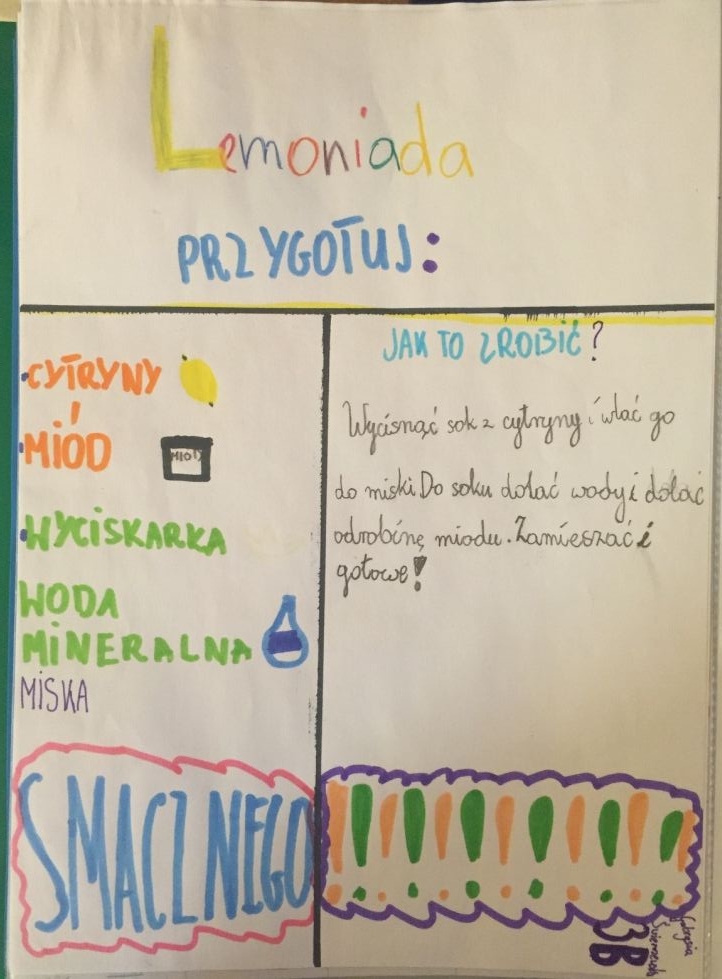 Lemoniada
PRZYGOTUJ:
CYTRYNY
i
MIÓD
MIÓD
WYCISKARKA
WODA
MINERALNA
MISKA
SMACZNEGO
JAK TO ZROBIĆ?
Wycisnąć sok z cytryny i wlać go
do miski Do soku dolać wody i dolać
odrobinę miodu. Zamieszać i
gotowe!
!!!!!!!!!!!!
3B